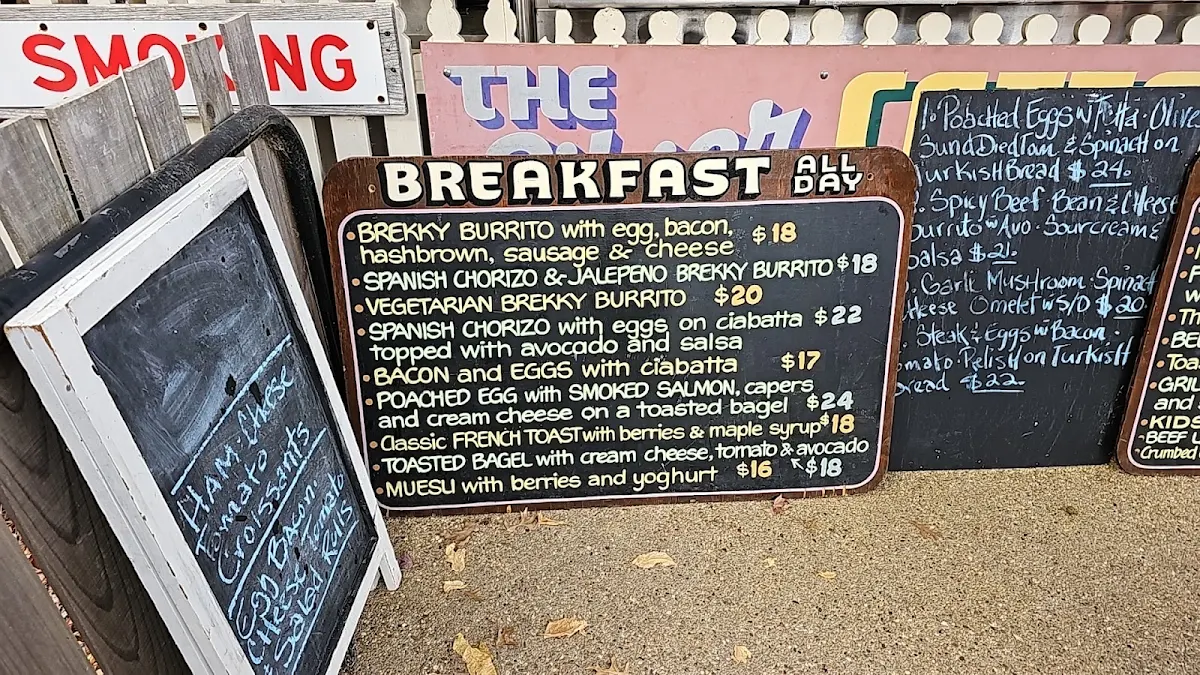 SMOKING
THE
BREAKFAST ALL DAY
• BREKKY BURRITO with egg, bacon,
hashbrown, sausage & cheese $18
• SPANISH CHORIZO & JALEPENO BREKKY BURRITO $18
• VEGETARIAN BREKKY BURRITO $20
• SPANISH CHORIZO with eggs on ciabatta $22
topped with avocado and salsa
• BACON and EGGS with ciabatta $17
• POACHED EGG with SMOKED SALMON, capers
and cream cheese on a toasted bagel $24
• Classic FRENCH TOAST with berries & maple syrup $18
• TOASTED BAGEL with cream cheese, tomato & avocado
• MUESLI with berries and yoghurt $16 $18
Poached Eggs w Fetta · Olive
SundDiedTom & Spinach on
TurkisH Bread $24.
Spicy Beef Bean & CHeese
Burrito w Avo · Sourcream &
Salsa $21.
Garlic Mushroom Spinach
CHeese Omelet w S/D $20
Steak & Eggs w Bacon ·
Tomato Relish on Turkish
Bread $22.
HAM · CHeese
Tomato
Croissants
Egg Bacon ·
CHeese Tomato
+ Salad Rolls
• GRIL
and
• KIDS
Crumbed